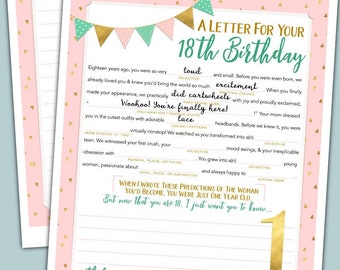 A LETTER FOR YOUR
18th Birthday
Eighteen years ago, you were so very loud and small. Before you were even born, we
ADJECTIVE
already loved you & knew you'd bring the world so much excitement. When you finally
made your appearance, we practically did cartwheels with joy and proudly exclaimed,
"Woohoo! You're finally here!" Your mom dressed
you in the cutest outfits with adorable lace headbands. Before we knew it, you were
virtually nonstop! We watched as you transformed into a(n)
ADJECTIVE
your first crush, an mood swings, & your inexplicable
obsession with
You grew into a(n) young
woman, passionate about and always happy to
WHEN I WROTE THESE PREDICTIONS OF THE WOMAN
YOU'D BECOME, YOU WERE JUST ONE YEAR OLD.
But now that you are 18, I just want you to know...
1